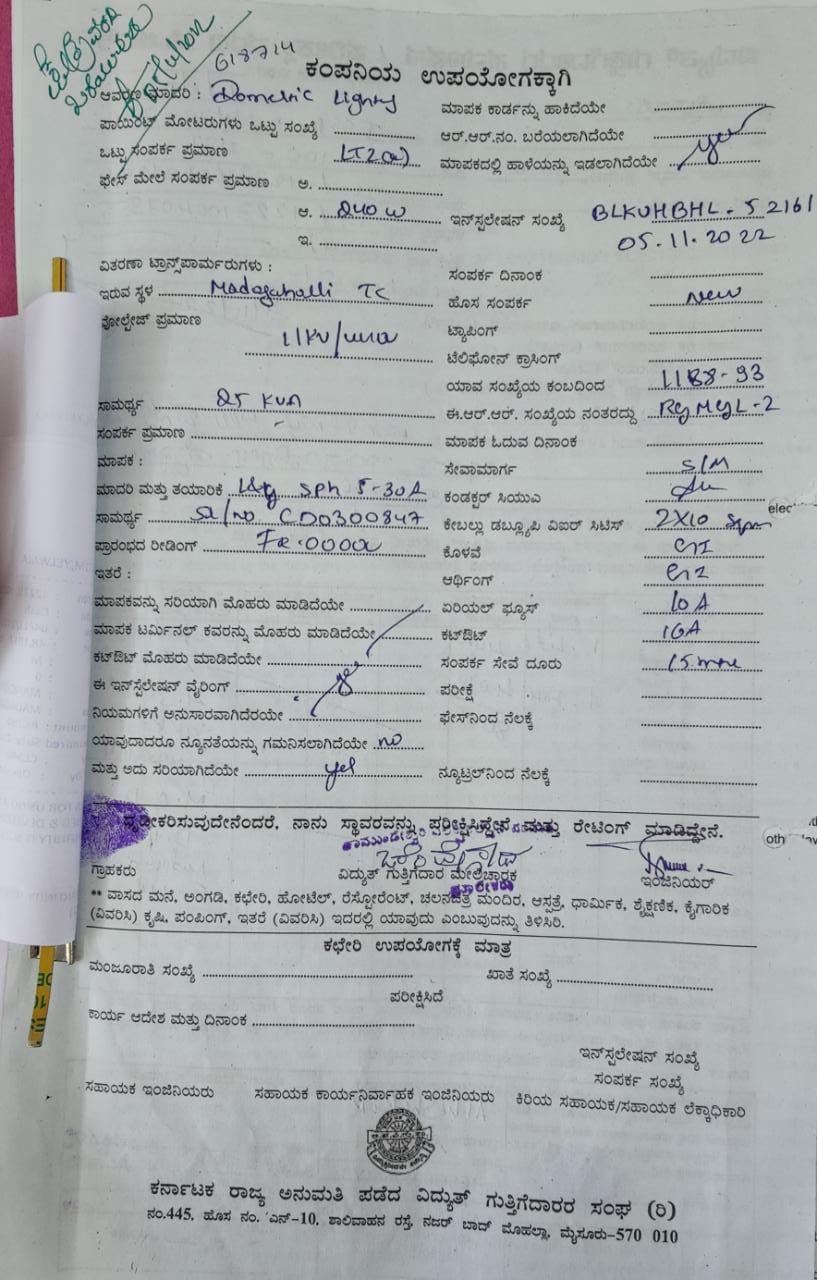 618714
ಕಂಪನಿಯ ಉಪಯೋಗಕ್ಕಾಗಿ
ಆವರಣ ಮಾದರಿ : Domestic Lighting ಮಾಪಕ ಕಾರ್ಡನ್ನು ಹಾಕಿದೆಯೇ
ಪಾಯಿಂಟ್ ಮೋಟರುಗಳು ಒಟ್ಟು ಸಂಖ್ಯೆ ಆರ್.ಆರ್.ನಂ. ಬರೆಯಲಾಗಿದೆಯೇ
ಒಟ್ಟು ಸಂಪರ್ಕ ಪ್ರಮಾಣ LT2(a) ಮಾಪಕದಲ್ಲಿ ಹಾಳೆಯನ್ನು ಇಡಲಾಗಿದೆಯೇ yes
ಫೇಸ್ ಮೇಲೆ ಸಂಪರ್ಕ ಪ್ರಮಾಣ ಅ.
ಆ. 240 w ಇನ್‌ಸ್ಟಲೇಷನ್ ಸಂಖ್ಯೆ BLKUHBHL-52161
ಇ. 05.11.2022
ವಿತರಣಾ ಟ್ರಾನ್ಸ್‌ಪಾರ್ಮರುಗಳು : ಸಂಪರ್ಕ ದಿನಾಂಕ
ಇರುವ ಸ್ಥಳ Madagahalli TC ಹೊಸ ಸಂಪರ್ಕ New
ವೋಲ್ಟೇಜ್ ಪ್ರಮಾಣ 11KV/ ಟ್ಯಾಪಿಂಗ್
ಟೆಲಿಫೋನ್ ಕ್ರಾಸಿಂಗ್
ಯಾವ ಸಂಖ್ಯೆಯ ಕಂಬದಿಂದ
ಸಾಮರ್ಥ್ಯ 25 KVA ಈ.ಆರ್.ಆರ್. ಸಂಖ್ಯೆಯ ನಂತರದ್ದು
ಸಂಪರ್ಕ ಪ್ರಮಾಣ ಮಾಪಕ ಓದುವ ದಿನಾಂಕ
ಮಾಪಕ : ಸೇವಾಮಾರ್ಗ S/M
ಮಾದರಿ ಮತ್ತು ತಯಾರಿಕೆ L&g SPh 5-30A ಕಂಡಕ್ಟರ್ ಸಿಯುವಿ
ಸಾಮರ್ಥ್ಯ Sl/no CD0300847 ಕೇಬಲ್ಲು ಡಬ್ಲ್ಯೂಪಿ ವಿಐರ್ ಸಿಟಿಸ್ 2X10 Sqm
ಪ್ರಾರಂಭದ ರೀಡಿಂಗ್ ಕೊಳವೆ GI
ಇತರೆ : ಆರ್ಥಿಂಗ್ GI
ಮಾಪಕವನ್ನು ಸರಿಯಾಗಿ ಮೊಹರು ಮಾಡಿದೆಯೇ ಏರಿಯಲ್ ಫ್ಯೂಸ್ 10A
ಮಾಪಕ ಟರ್ಮಿನಲ್ ಕವರನ್ನು ಮೊಹರು ಮಾಡಿದೆಯೇ ಕಟ್‌ಔಟ್ 16A
ಕಟ್‌ಔಟ್ ಮೊಹರು ಮಾಡಿದೆಯೇ ಸಂಪರ್ಕ ಸೇವೆ ದೂರು
ಈ ಇನ್‌ಸ್ಟೆಲೇಷನ್ ವೈರಿಂಗ್ yes ಪರೀಕ್ಷೆ
ನಿಯಮಗಳಿಗೆ ಅನುಸಾರವಾಗಿದೆರಯೇ ಫೇಸ್‌ನಿಂದ ನೆಲಕ್ಕೆ
ಯಾವುದಾದರೂ ನ್ಯೂನತೆಯನ್ನು ಗಮನಿಸಲಾಗಿದೆಯೇ no
ಮತ್ತು ಅದು ಸರಿಯಾಗಿದೆಯೇ yes ನ್ಯೂಟ್ರಲ್‌ನಿಂದ ನೆಲಕ್ಕೆ
ದೃಢೀಕರಿಸುವುದೇನೆಂದರೆ, ನಾನು ಸ್ಥಾವರವನ್ನು ಪರೀಕ್ಷಿಸಿದ್ದೇನೆ ಮತ್ತು ರೇಟಿಂಗ್ ಮಾಡಿದ್ದೇನೆ.
ಗ್ರಾಹಕರು ವಿದ್ಯುತ್ ಗುತ್ತಿಗೆದಾರ ಮೇಲ್ವಿಚಾರಕ ಇಂಜಿನಿಯರ್
** ವಾಸದ ಮನೆ, ಅಂಗಡಿ, ಕಛೇರಿ, ಹೋಟೆಲ್, ರೆಸ್ಟೋರೆಂಟ್, ಚಲನಚಿತ್ರ ಮಂದಿರ, ಆಸ್ಪತ್ರೆ, ಧಾರ್ಮಿಕ, ಶೈಕ್ಷಣಿಕ, ಕೈಗಾರಿಕೆ
(ವಿವರಿಸಿ) ಕೃಷಿ, ಪಂಪಿಂಗ್, ಇತರೆ (ವಿವರಿಸಿ) ಇದರಲ್ಲಿ ಯಾವುದು ಎಂಬುವುದನ್ನು ತಿಳಿಸಿರಿ.
ಕಛೇರಿ ಉಪಯೋಗಕ್ಕೆ ಮಾತ್ರ
ಮಂಜೂರಾತಿ ಸಂಖ್ಯೆ ಖಾತೆ ಸಂಖ್ಯೆ
ಪರೀಕ್ಷಿಸಿದೆ
ಕಾರ್ಯ ಆದೇಶ ಮತ್ತು ದಿನಾಂಕ
ಇನ್‌ಸ್ಟಲೇಷನ್ ಸಂಖ್ಯೆ
ಸಂಪರ್ಕ ಸಂಖ್ಯೆ
ಸಹಾಯಕ ಇಂಜಿನಿಯರು ಸಹಾಯಕ ಕಾರ್ಯನಿರ್ವಾಹಕ ಇಂಜಿನಿಯರು ಕಿರಿಯ ಸಹಾಯಕ/ಸಹಾಯಕ ಲೆಕ್ಕಾಧಿಕಾರಿ
ಕರ್ನಾಟಕ ರಾಜ್ಯ ಅನುಮತಿ ಪಡೆದ ವಿದ್ಯುತ್ ಗುತ್ತಿಗೆದಾರರ ಸಂಘ (ರಿ)
ನಂ.445, ಹೊಸ ನಂ. 'ಎನ್-10, ಶಾಲಿವಾಹನ ರಸ್ತೆ, ನಜರ್ ಬಾದ್ ಮೊಹಲ್ಲಾ, ಮೈಸೂರು-570 010